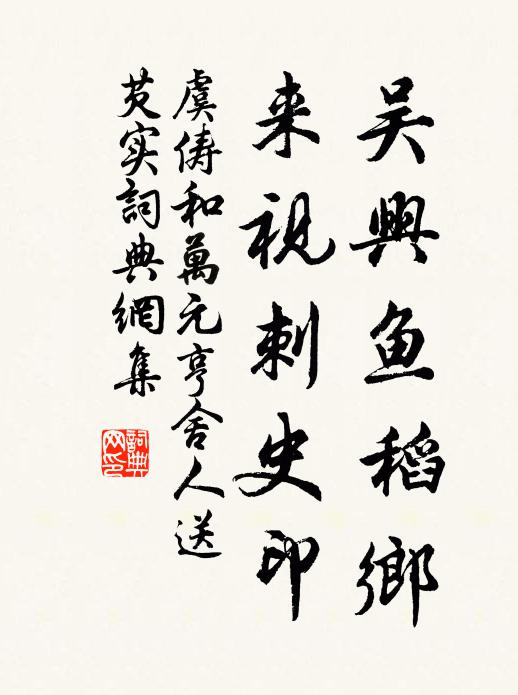 吴興鱼稻鄉
来視刺史印
虞俦和萬元亨舍人送
芡实詞典網集
詞典网印